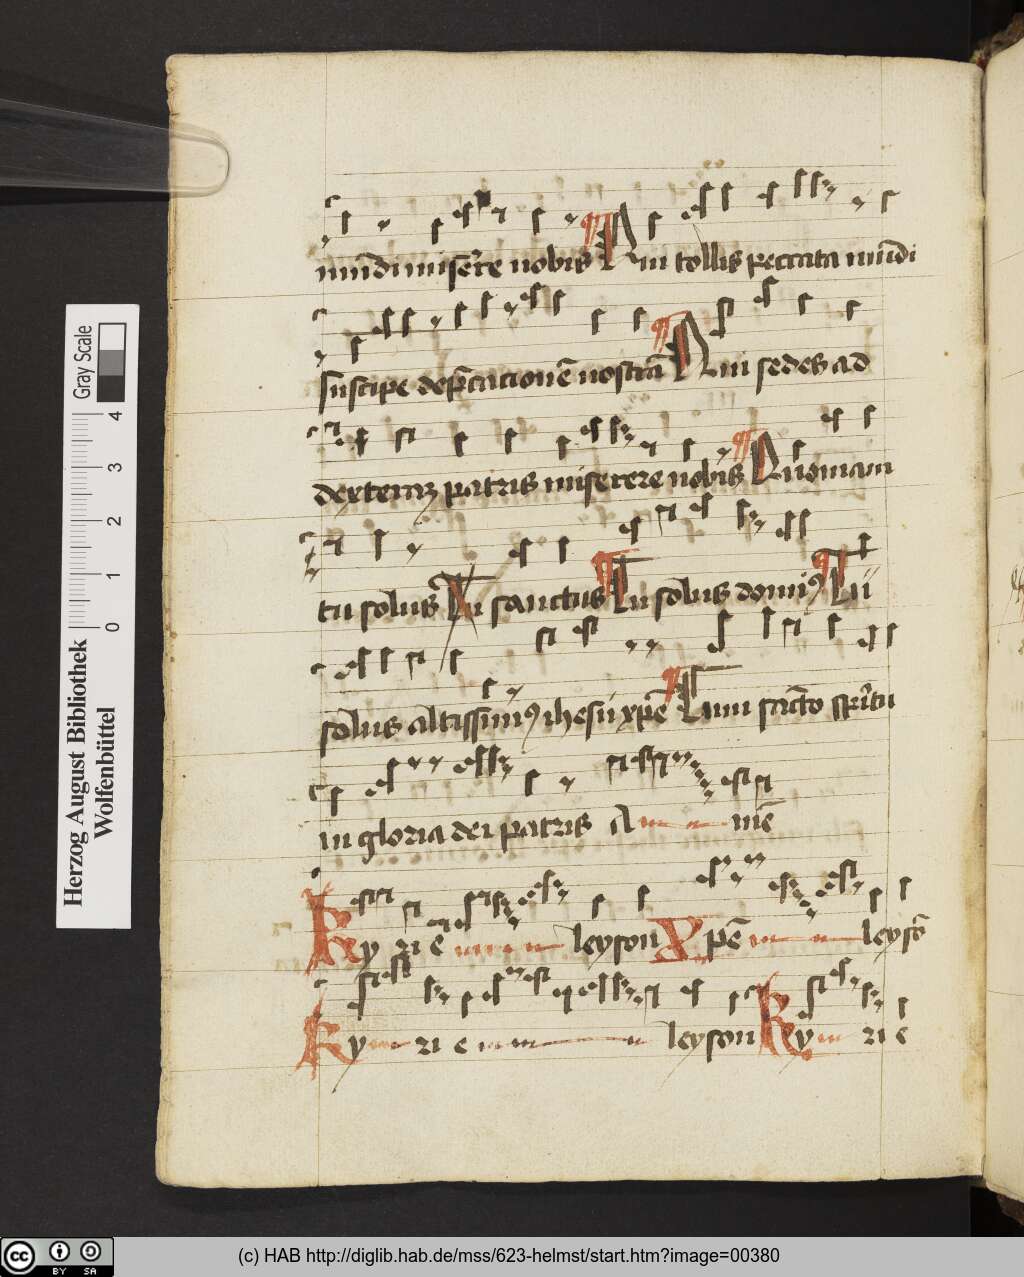 mūdi miserere nobis Qui tollis peccata mūdi
suscipe depcacionē nostrā Qui sedes ad
dexteram patris miserere nobis Quoniam
tu solus Tu sanctus Tu solus domin9 Tu
solus altissim9 ihesu xpē Cum sācto spiritu
in gloria dei patris A mē
Ky ri ē leyson Xpē leysō
Ky ri e leyson Ky ri ē
Gray Scale
4 3 2 1 0
Herzog August Bibliothek
Wolfenbüttel
cc BY SA
(c) HAB http://diglib.hab.de/mss/623-helmst/start.htm?image=00380